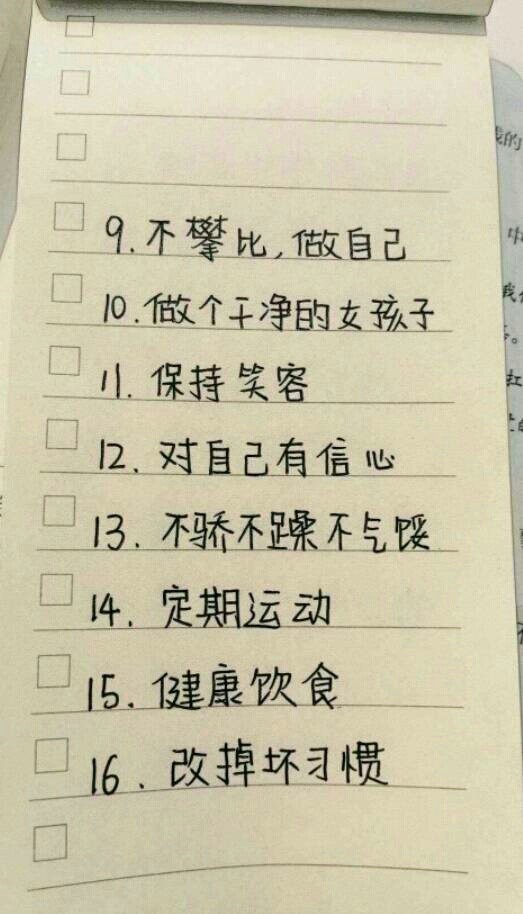 9.不攀比,做自己
10.做个干净的女孩子
11.保持笑容
12.对自己有信心
13.不骄不躁不气馁
14.定期运动
15.健康饮食
16.改掉坏习惯